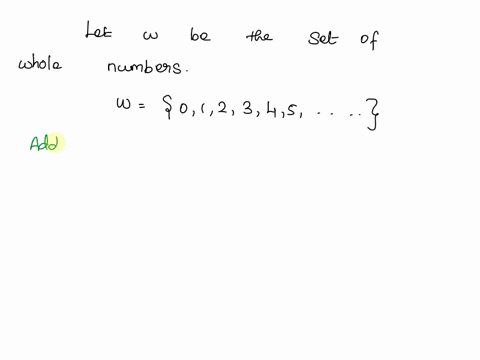 Let w be the set of
whole numbers.
w = { 0, 1, 2, 3, 4, 5, . . . . . }
Add